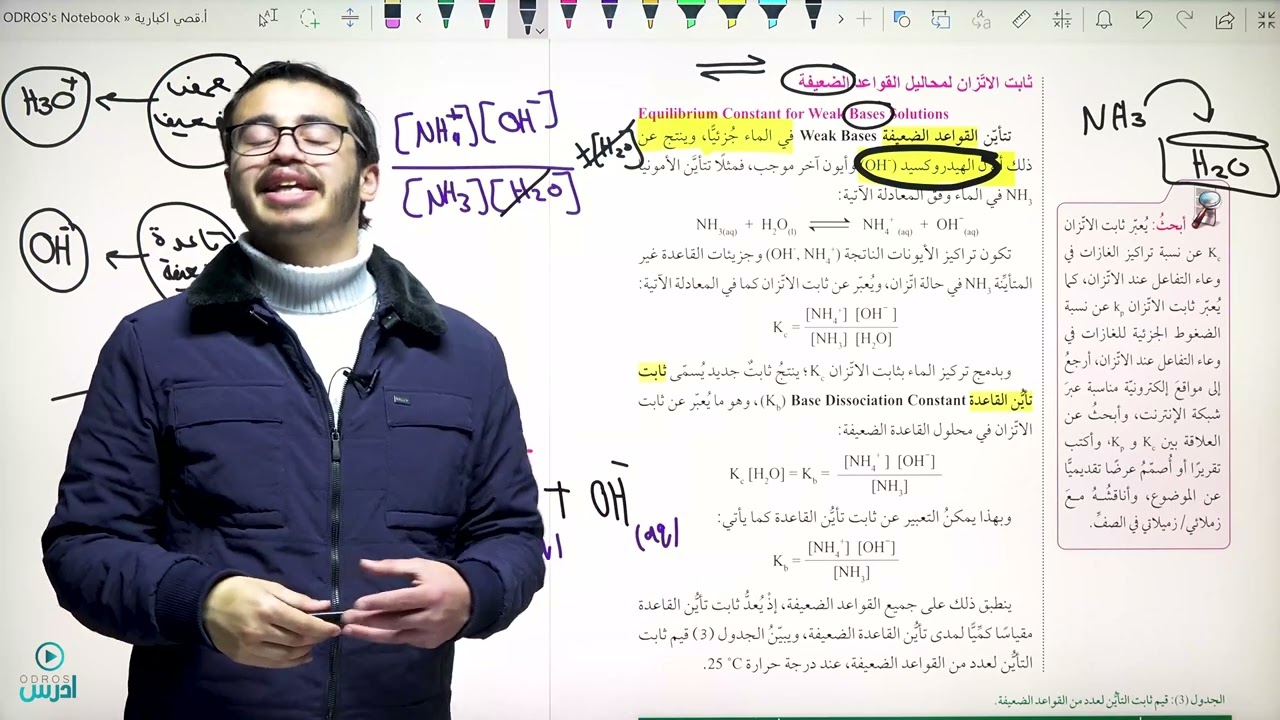 ODROS's Notebook » أ.قصي اكبارية
ثابت الاتّزان لمحاليل القواعد الضعيفة
Equilibrium Constant for Weak Bases Solutions
تتأيّن القواعد الضعيفة Weak Bases في الماء جُزئيًّا، وينتج عن
ذلك الهيدروكسيد (OH⁻) وأيون آخر موجب، فمثلًا تتأيَّن الأمونيا
NH₃ في الماء وفق المعادلة الآتية:
NH₃(aq) + H₂O(l) ⇌ NH₄⁺(aq) + OH⁻(aq)
تكون تراكيز الأيونات الناتجة (OH⁻, NH₄⁺) وجزيئات القاعدة غير
المتأيّنة NH₃ في حالة اتّزان، ويُعبّر عن ثابت الاتّزان كما في المعادلة الآتية:
Kc = [NH₄⁺] [OH⁻]
[NH₃] [H₂O]
وبدمج تركيز الماء بثابت الاتّزان Kc؛ ينتجُ ثابتٌ جديد يُسمّى ثابت
تأيُّن القاعدة Base Dissociation Constant (Kb)، وهو ما يُعبّر عن ثابت
الاتّزان في محلول القاعدة الضعيفة:
Kc [H₂O] = Kb = [NH₄⁺] [OH⁻]
[NH₃]
وبهذا يمكنُ التعبير عن ثابت تأيُّن القاعدة كما يأتي:
Kb = [NH₄⁺] [OH⁻]
[NH₃]
ينطبق ذلك على جميع القواعد الضعيفة، إذْ يُعدُّ ثابت تأيُّن القاعدة
مقياسًا كمِّيًّا لمدى تأيُّن القاعدة الضعيفة، ويبيّنُ الجدول (3) قيم ثابت
التأيُّن لعدد من القواعد الضعيفة، عند درجة حرارة 25 °C.
الجدول (3): قيم ثابت التأيُّن لعدد من القواعد الضعيفة.
NH₃
H₂O
أبحثُ: يُعبّر ثابت الاتّزان
Kc عن نسبة تراكيز الغازات في
وعاء التفاعل عند الاتّزان، كما
يُعبّر ثابت الاتّزان kp عن نسبة
الضغوط الجزئية للغازات في
وعاء التفاعل عند الاتّزان، أرجعُ
إلى مواقعَ إلكترونيّة مناسبة عبرَ
شبكة الإنترنت، وأبحثُ عن
العلاقة بين Kc و Kp، وأكتب
تقريرًا أو أُصمّمُ عرضًا تقديميًّا
عن الموضوع، وأناقشُهُ معَ
زملائي/ زميلاتي في الصفّ.
[NH₄⁺][OH⁻]
[NH₃][H₂O] ×[H₂O]
H₃O⁺ ← حمض ضعيف
OH⁻ ← قاعدة ضعيفة
+ OH⁻
(aq)
ODROS
ادرس